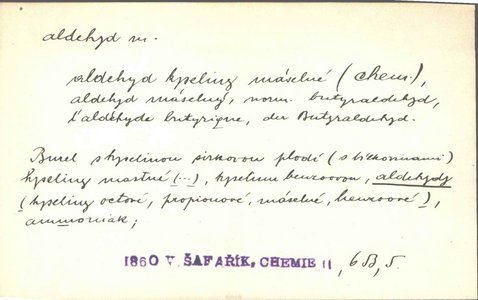 aldehyd m.
aldehyd kyseliny máselné (chem.),
aldehyd máselný, norm. butyraldehyd,
l'aldéhyde butyrique, der Butyraldehyd.
Burel s kyselinou sirkovou plodí (s bílkovinami)
kyseliny mastné (...), kyselinu benzoovou, aldehydy
(kyseliny octové, propionové, máselné, benzoové),
ammoniak;
1860 V. ŠAFAŘÍK, CHEMIE II, 6B, 5.